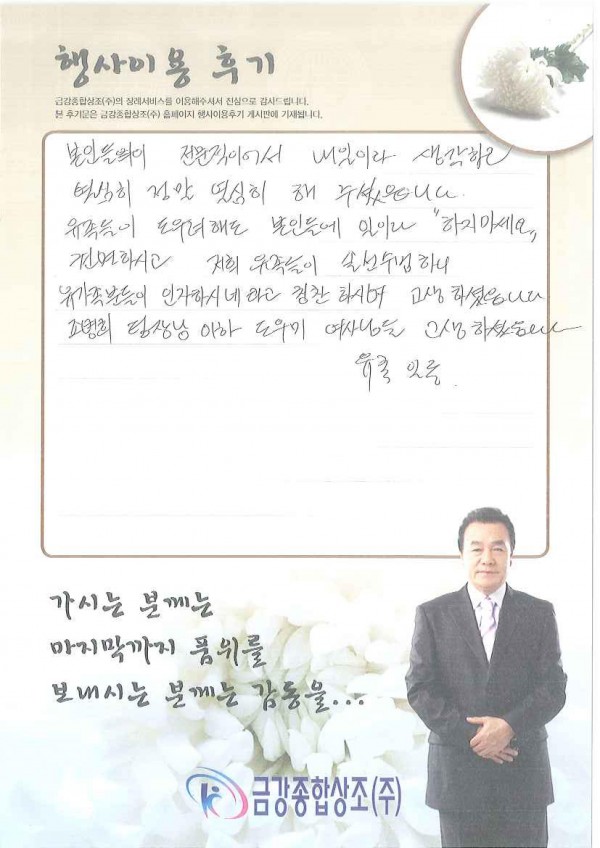 행사이용 후기
금강종합상조(주)의 장례서비스를 이용해주셔서 진심으로 감사드립니다.
본 후기문은 금강종합상조(주) 홈페이지 행사이용후기 게시판에 기재됩니다.
본인들 전문직이어서 내일이라 생각하고
열심히 정말 열심히 해 주셨습니다.
유족들이 도우려해도 본인들에 일이라 "하지마세요"
하시고 저희 유족들이 솔선수범 하니
유가족분들이 인자하시네라고 칭찬 하시며 고생하셨습니다
조병희 팀장님 이하 도우미 여사님들 고생하셨습니다
유족 일동.
가시는 분께는
마지막까지 품위를
보내시는 분께는 감동을...
금강종합상조(주)